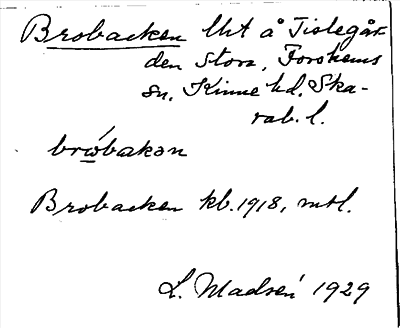 Brobacken lht å Tislegår-
den Stora, Forshems
sn, Kinne hd, Ska-
rab. l.
brωbakan
Brobacken kb. 1918, mtl.
L. Madsén 1929